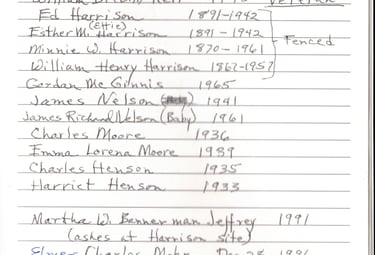 Veteran
Ed Harrison 1891-1942
(Effie)
Esther M. Harrison 1891-1942
Minnie W. Harrison 1870-1961
Fenced
William Henry Harrison 1862-1957
Gordon McGinnis 1965
James Nelson 1991
James Richard Nelson (Baby) 1961
Charles Moore 1936
Emma Lorena Moore 1989
Charles Henson 1935
Harriet Henson 1933
Martha W. Bannerman Jeffrey 1991
(ashes at Harrison site)
Charles